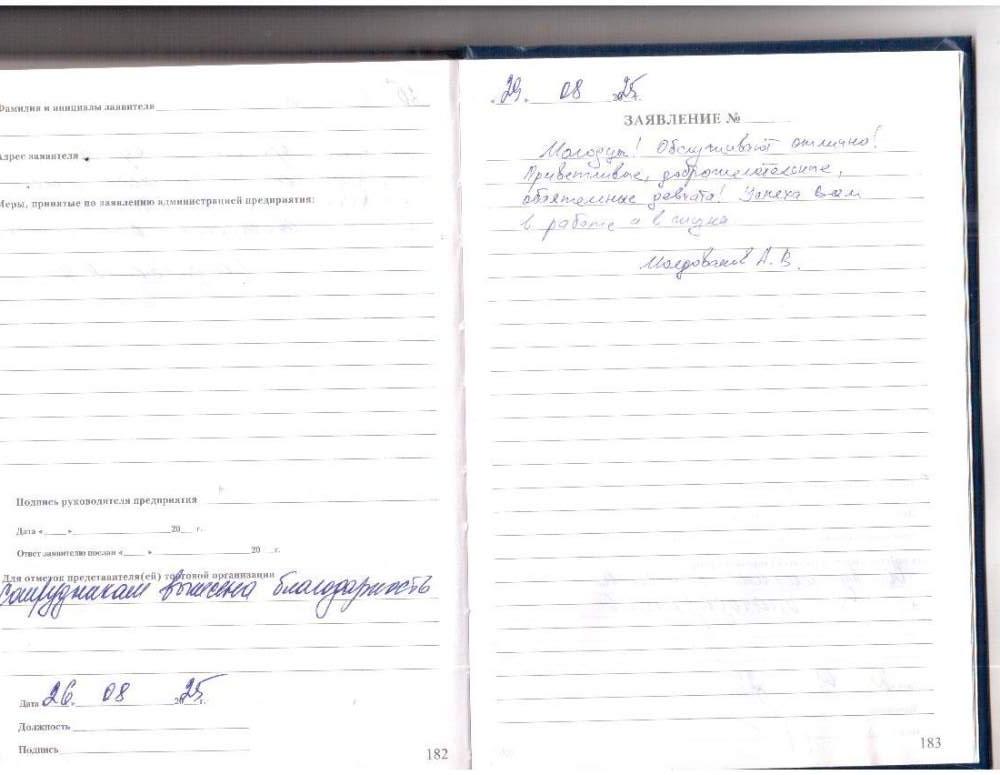 Фамилия и инициалы заявителя
Адрес заявителя
Меры, принятые по заявлению администрацией предприятия:
Подпись руководителя предприятия
Дата «____» ________ 20__ г.
Ответ заявителю послан «____» ________ 20__ г.
Для отметок представителя(ей) торговой организации
Сотрудникам вынесена благодарность
Дата 26. 08 2025г.
Должность
Подпись
182
29. 08 2025г.
ЗАЯВЛЕНИЕ №
Молодцы! Обслуживают отлично!
Приветливые, доброжелательные,
обаятельные девчата! Успеха вам
в работе и в жизни
А. В.
183